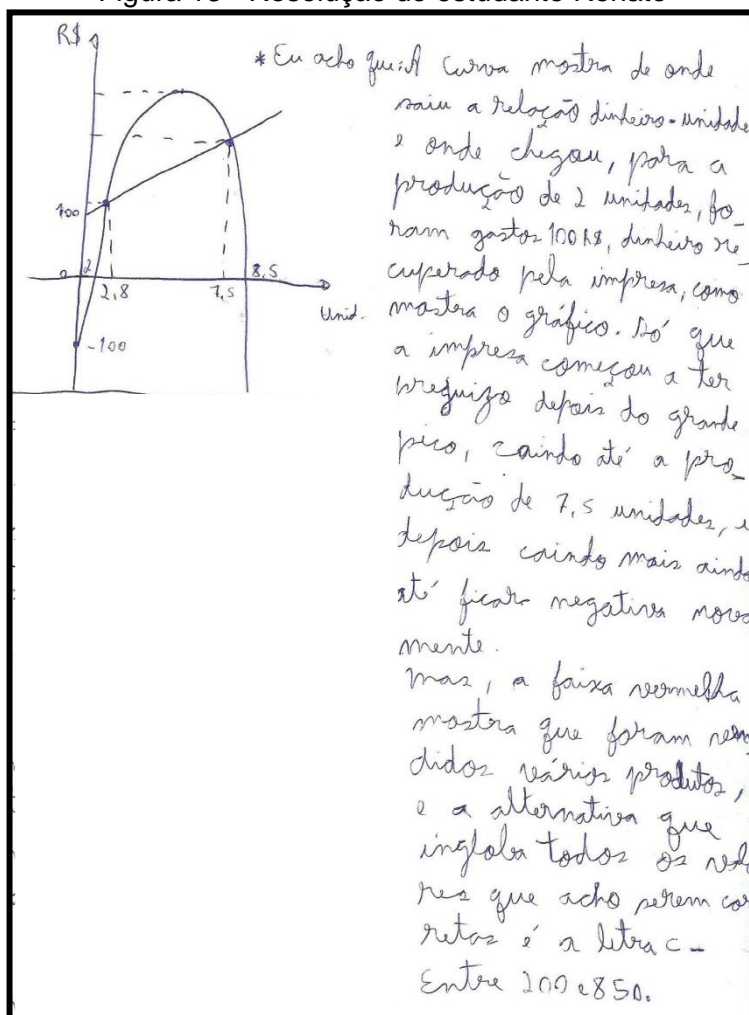 Figura 13 - Resolução do estudante Renato
R$
100
0
2
2,8
7,5
8,5
Unid.
-100
* Eu acho que: A curva mostra de onde
saiu a relação dinheiro-unidade
e onde chegou, para a
produção de 2 unidades, fo-
ram gastos 100 R$, dinheiro re-
cuperado pela impresa, como
mostra o gráfico. Só que
a impresa começou a ter
preguizo depois do grande
pico, caindo até a pro-
dução de 7,5 unidades, e
depois caindo mais ainda
até ficar negativa nova
mente.
Mas, a faixa vermelha
mostra que foram ven
didos vários produtos,
e a alternativa que
ingloba todos os valo
res que acho serem cor
retos é a letra C -
Entre 200 e 850.